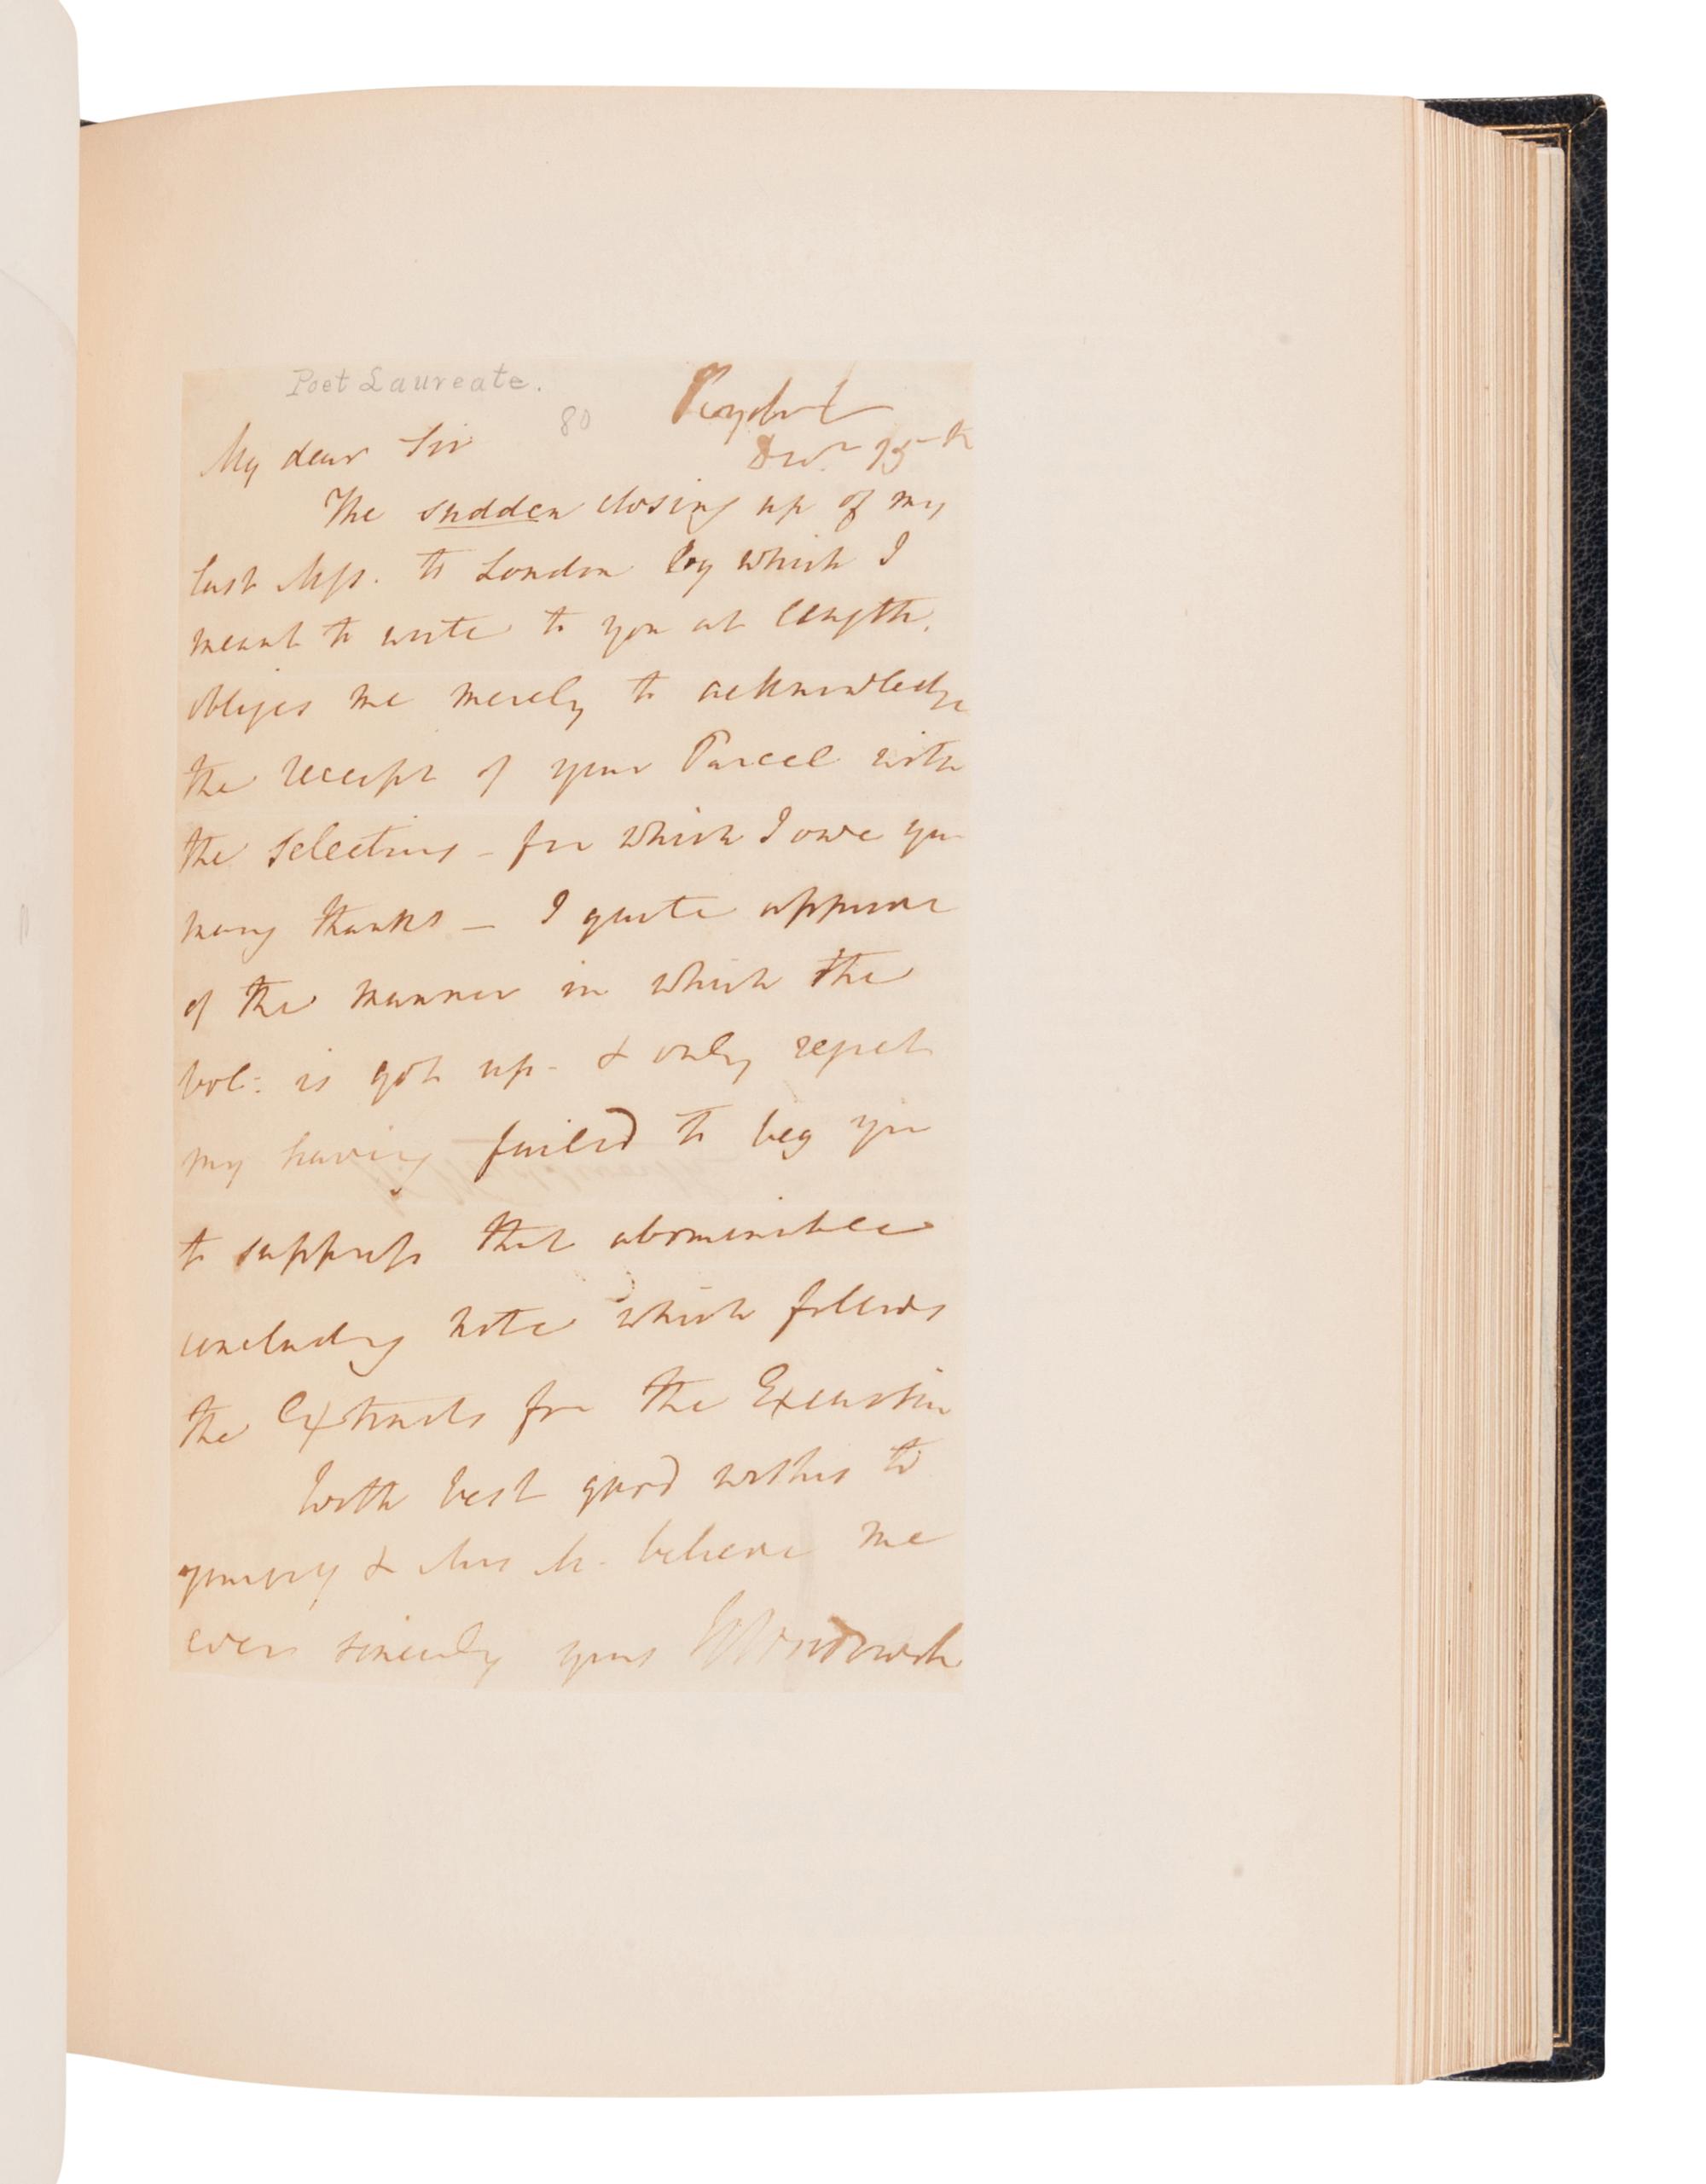 Poet Laureate.
80
Rydal
My dear Sir
Decr 15th
The sudden closing up of my
last Mss. to London by which I
meant to write to you at length,
obliges me merely to acknowledge
the receipt of your Parcel with
the Selections – for which I owe you
many thanks – I quite approve
of the manner in which the
vol: is got up – & only regret
my having failed to beg you
to suppress that abominable
concluding note which follows
the Extracts from the Excursion
With best good wishes to
yourself & Mrs M. believe me
ever sincerely yours Wm Wordsworth